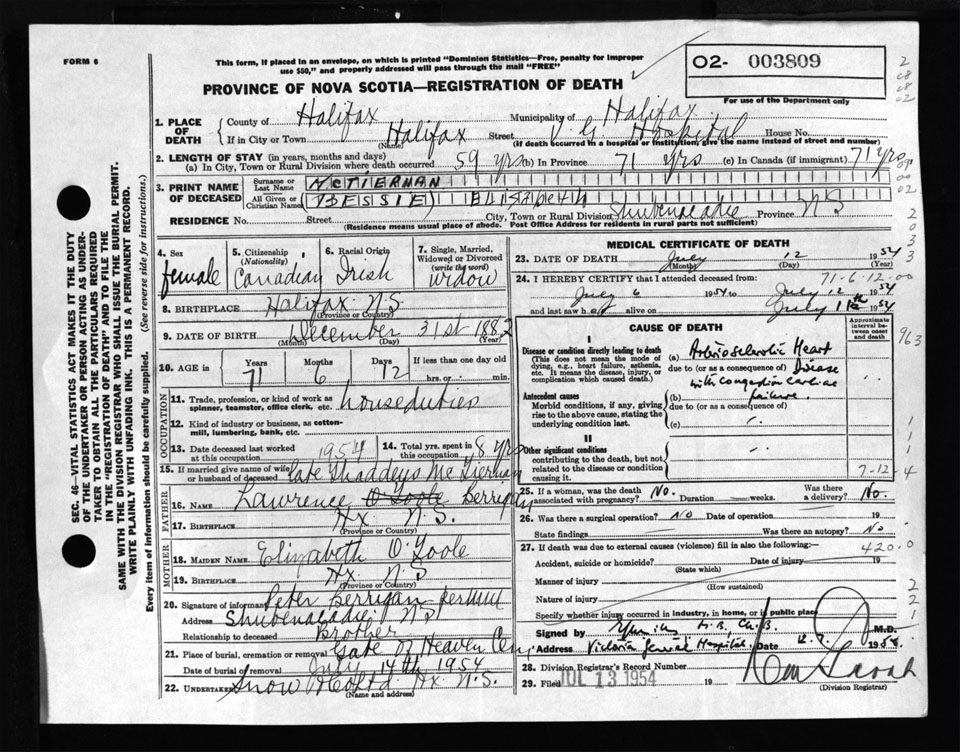 FORM 6
This form, if placed in an envelope, on which is printed "Dominion Statistics—Free, penalty for improper
use $50," and properly addressed will pass through the mail "FREE"
O2- 003809
For use of the Department only
PROVINCE OF NOVA SCOTIA—REGISTRATION OF DEATH
1. PLACE OF DEATH
County of Halifax Municipality of Halifax
If in City or Town Halifax (Name) Street V. G. Hospital House No.
(If death occurred in a hospital or institution, give the name instead of street and number)
2. LENGTH OF STAY (in years, months and days)
(a) In City, Town or Rural Division where death occurred 59 yrs (b) In Province 71 yrs (c) In Canada (if immigrant) 71 yrs
3. PRINT NAME OF DECEASED
Surname or Last Name McTIERNAN
All Given or Christian Names (BESSIE) Elizabeth
RESIDENCE No. Street City, Town or Rural Division Shubenacadie Province N S
(Residence means usual place of abode. Post Office Address for residents in rural parts not sufficient)
4. Sex female
5. Citizenship (Nationality) Canadian
6. Racial Origin Irish
7. Single, Married, Widowed or Divorced (write the word) Widow
8. BIRTHPLACE Halifax N.S. (Province or Country)
9. DATE OF BIRTH December 31st 1882
(Month) (Day) (Year)
10. AGE in Years 71 Months 6 Days 12 If less than one day old
hrs. or min.
OCCUPATION
11. Trade, profession, or kind of work as spinner, teamster, office clerk, etc. houseduties
12. Kind of industry or business, as cotton-mill, lumbering, bank, etc.
13. Date deceased last worked at this occupation 1954
14. Total yrs. spent in this occupation 8 yrs
15. If married give name of wife or husband of deceased late Thaddeys McTiernan
FATHER
16. NAME Lawrence O'Toole Berrigan
17. BIRTHPLACE Hx N.S.
(Province or Country)
MOTHER
18. MAIDEN NAME Elizabeth O'Toole
19. BIRTHPLACE Hx N.S
(Province or Country)
20. Signature of informant Peter Berrigan
Address Shubenacadie N S
Relationship to deceased Brother
21. Place of burial, cremation or removal Gate of Heaven Cem
Date of burial or removal July 14th 1954
22. Undertaker Snow & Co Ltd. Hx. N.S.
(Name and address)
MEDICAL CERTIFICATE OF DEATH
23. DATE OF DEATH July 12 1954
(Month) (Day) (Year)
24. I HEREBY CERTIFY that I attended deceased from: 71-6-12-00
July 6 1954 to July 12 1954
and last saw her alive on July 1954
CAUSE OF DEATH
Approximate interval between onset and death
I
Disease or condition directly leading to death
(This does not mean the mode of dying, e.g., heart failure, asthenia, etc. It means the disease, injury, or complication which caused death.)
(a) Arteriosclerotic Heart Disease
due to (or as a consequence of)
with congestive cardiac
Antecedent causes
Morbid conditions, if any, giving rise to the above cause, stating the underlying condition last.
(b) failure.
due to (or as a consequence of)
(c)
II
Other significant conditions
contributing to the death, but not related to the disease or condition causing it.
7-12-4
25. If a woman, was the death associated with pregnancy? No. Duration weeks. Was there a delivery? No.
26. Was there a surgical operation? No Date of operation 19
State findings Was there an autopsy? No
27. If death was due to external causes (violence) fill in also the following: 420.0
Accident, suicide or homicide? (State which) Date of injury 19
Manner of injury (How sustained)
Nature of injury
Specify whether injury occurred in industry, in home, or in public place
Signed by M.B. Ch.B. M.D.
Address Victoria General Hospital. Date 1954.
28. Division Registrar's Record Number
29. Filed JUL 13 1954 19
(Division Registrar)
SEC. 46—VITAL STATISTICS ACT MAKES IT THE DUTY
OF THE UNDERTAKER OR PERSON ACTING AS UNDER-
TAKER TO OBTAIN ALL THE PARTICULARS REQUIRED
IN THE "REGISTRATION OF DEATH" AND TO FILE THE
SAME WITH THE DIVISION REGISTRAR WHO SHALL ISSUE THE BURIAL PERMIT.
WRITE PLAINLY WITH UNFADING INK. THIS IS A PERMANENT RECORD.
Every item of information should be carefully supplied. (See reverse side for instructions.)
963